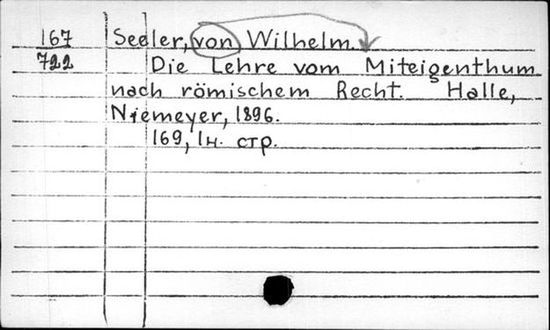 167 Seeler, von Wilhelm.
722 Die Lehre vom Miteigenthum
nach römischem Recht. Halle,
Niemeyer, 1896.
169, 1н. стр.